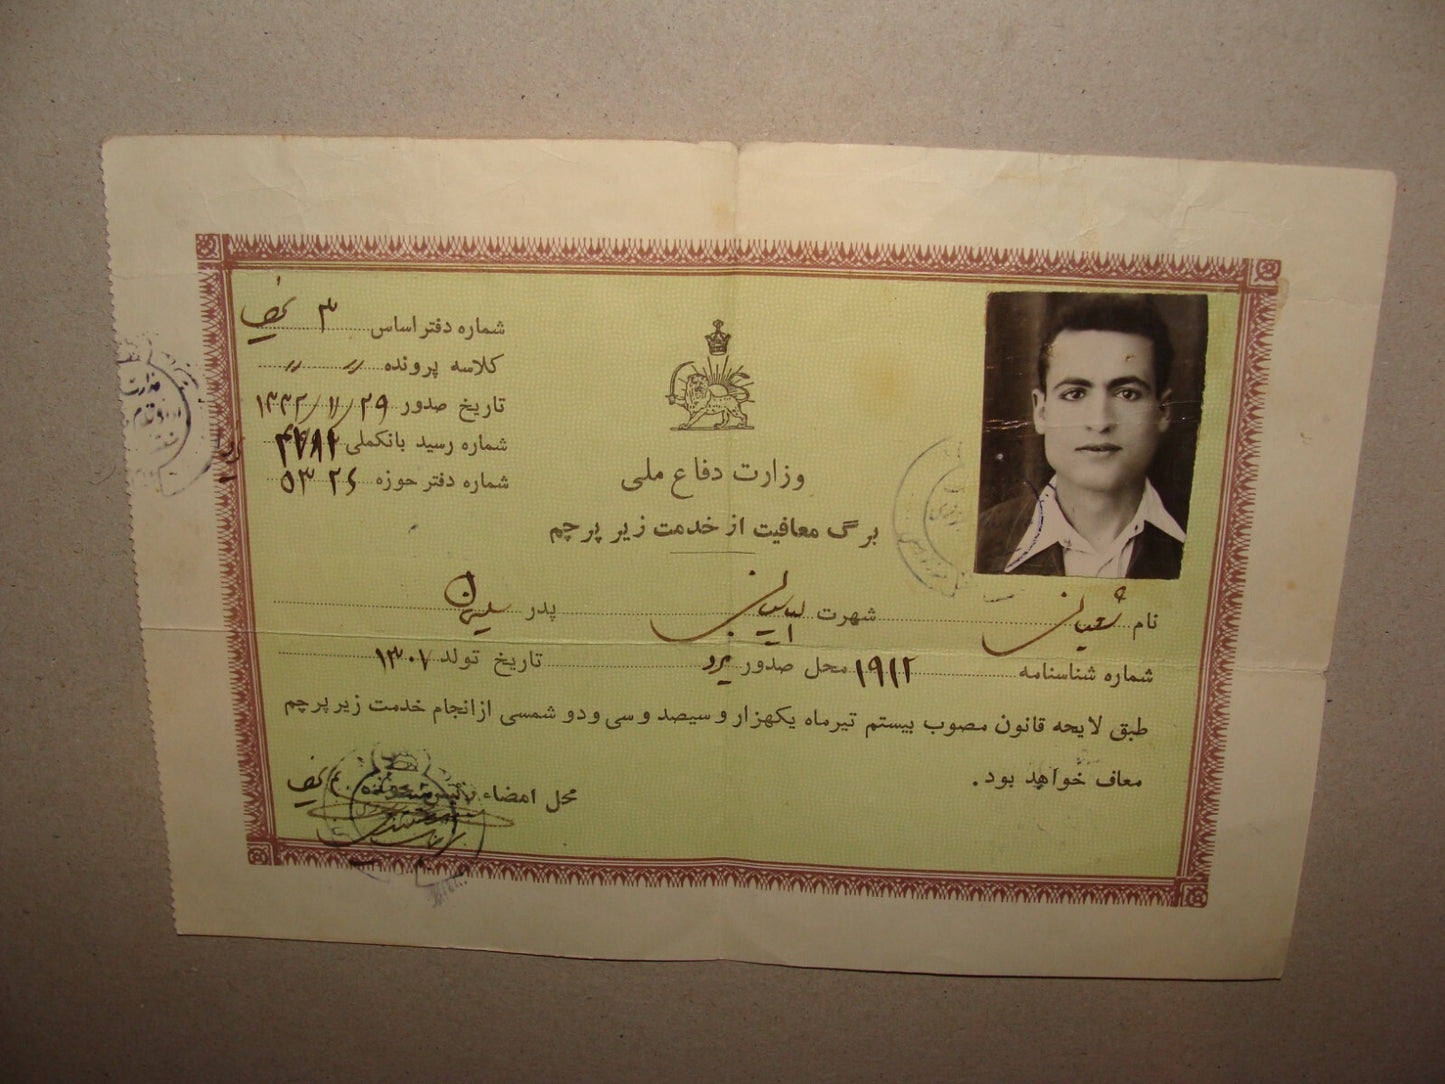 شماره دفتر اساس ۳
کلاسه پرونده " "
تاریخ صدور ۱۳۳۲/۱۱/۲۹
شماره رسید بانک‌ملی
شماره دفتر حوزه ۵۳۲۶
وزارت دفاع ملی
برگ معافیت از خدمت زیر پرچم
نام شهرت پدر سلیمان
شماره شناسنامه ۱۹۱۲ محل صدور یزد تاریخ تولد ۱۳۰۷
طبق لایحه قانون مصوب بیستم تیرماه یکهزار و سیصد و سی و دو شمسی از انجام خدمت زیر پرچم
معاف خواهد بود.
محل امضاء